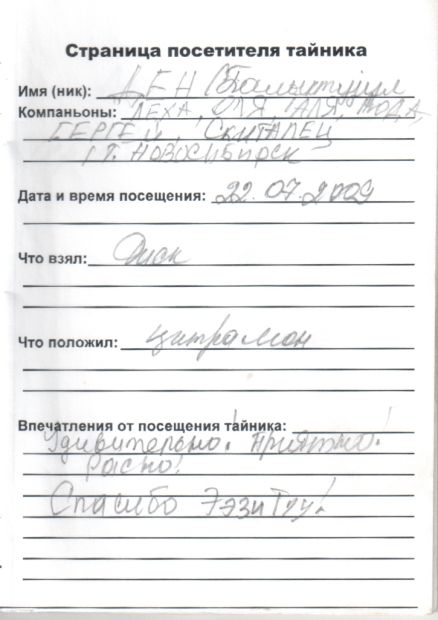 Страница посетителя тайника
Имя (ник): ДЕН
Компаньоны: ЛЕХА, ОЛЯ, АЛЯ,
СЕРГЕЙ, СКИТАЛЕЦ
г. НОВОСИБИРСК
Дата и время посещения: 22.07.2009
Что взял: Диск
Что положил: цитрамон
Впечатления от посещения тайника:
Удивительно! Приятно!
Спасибо